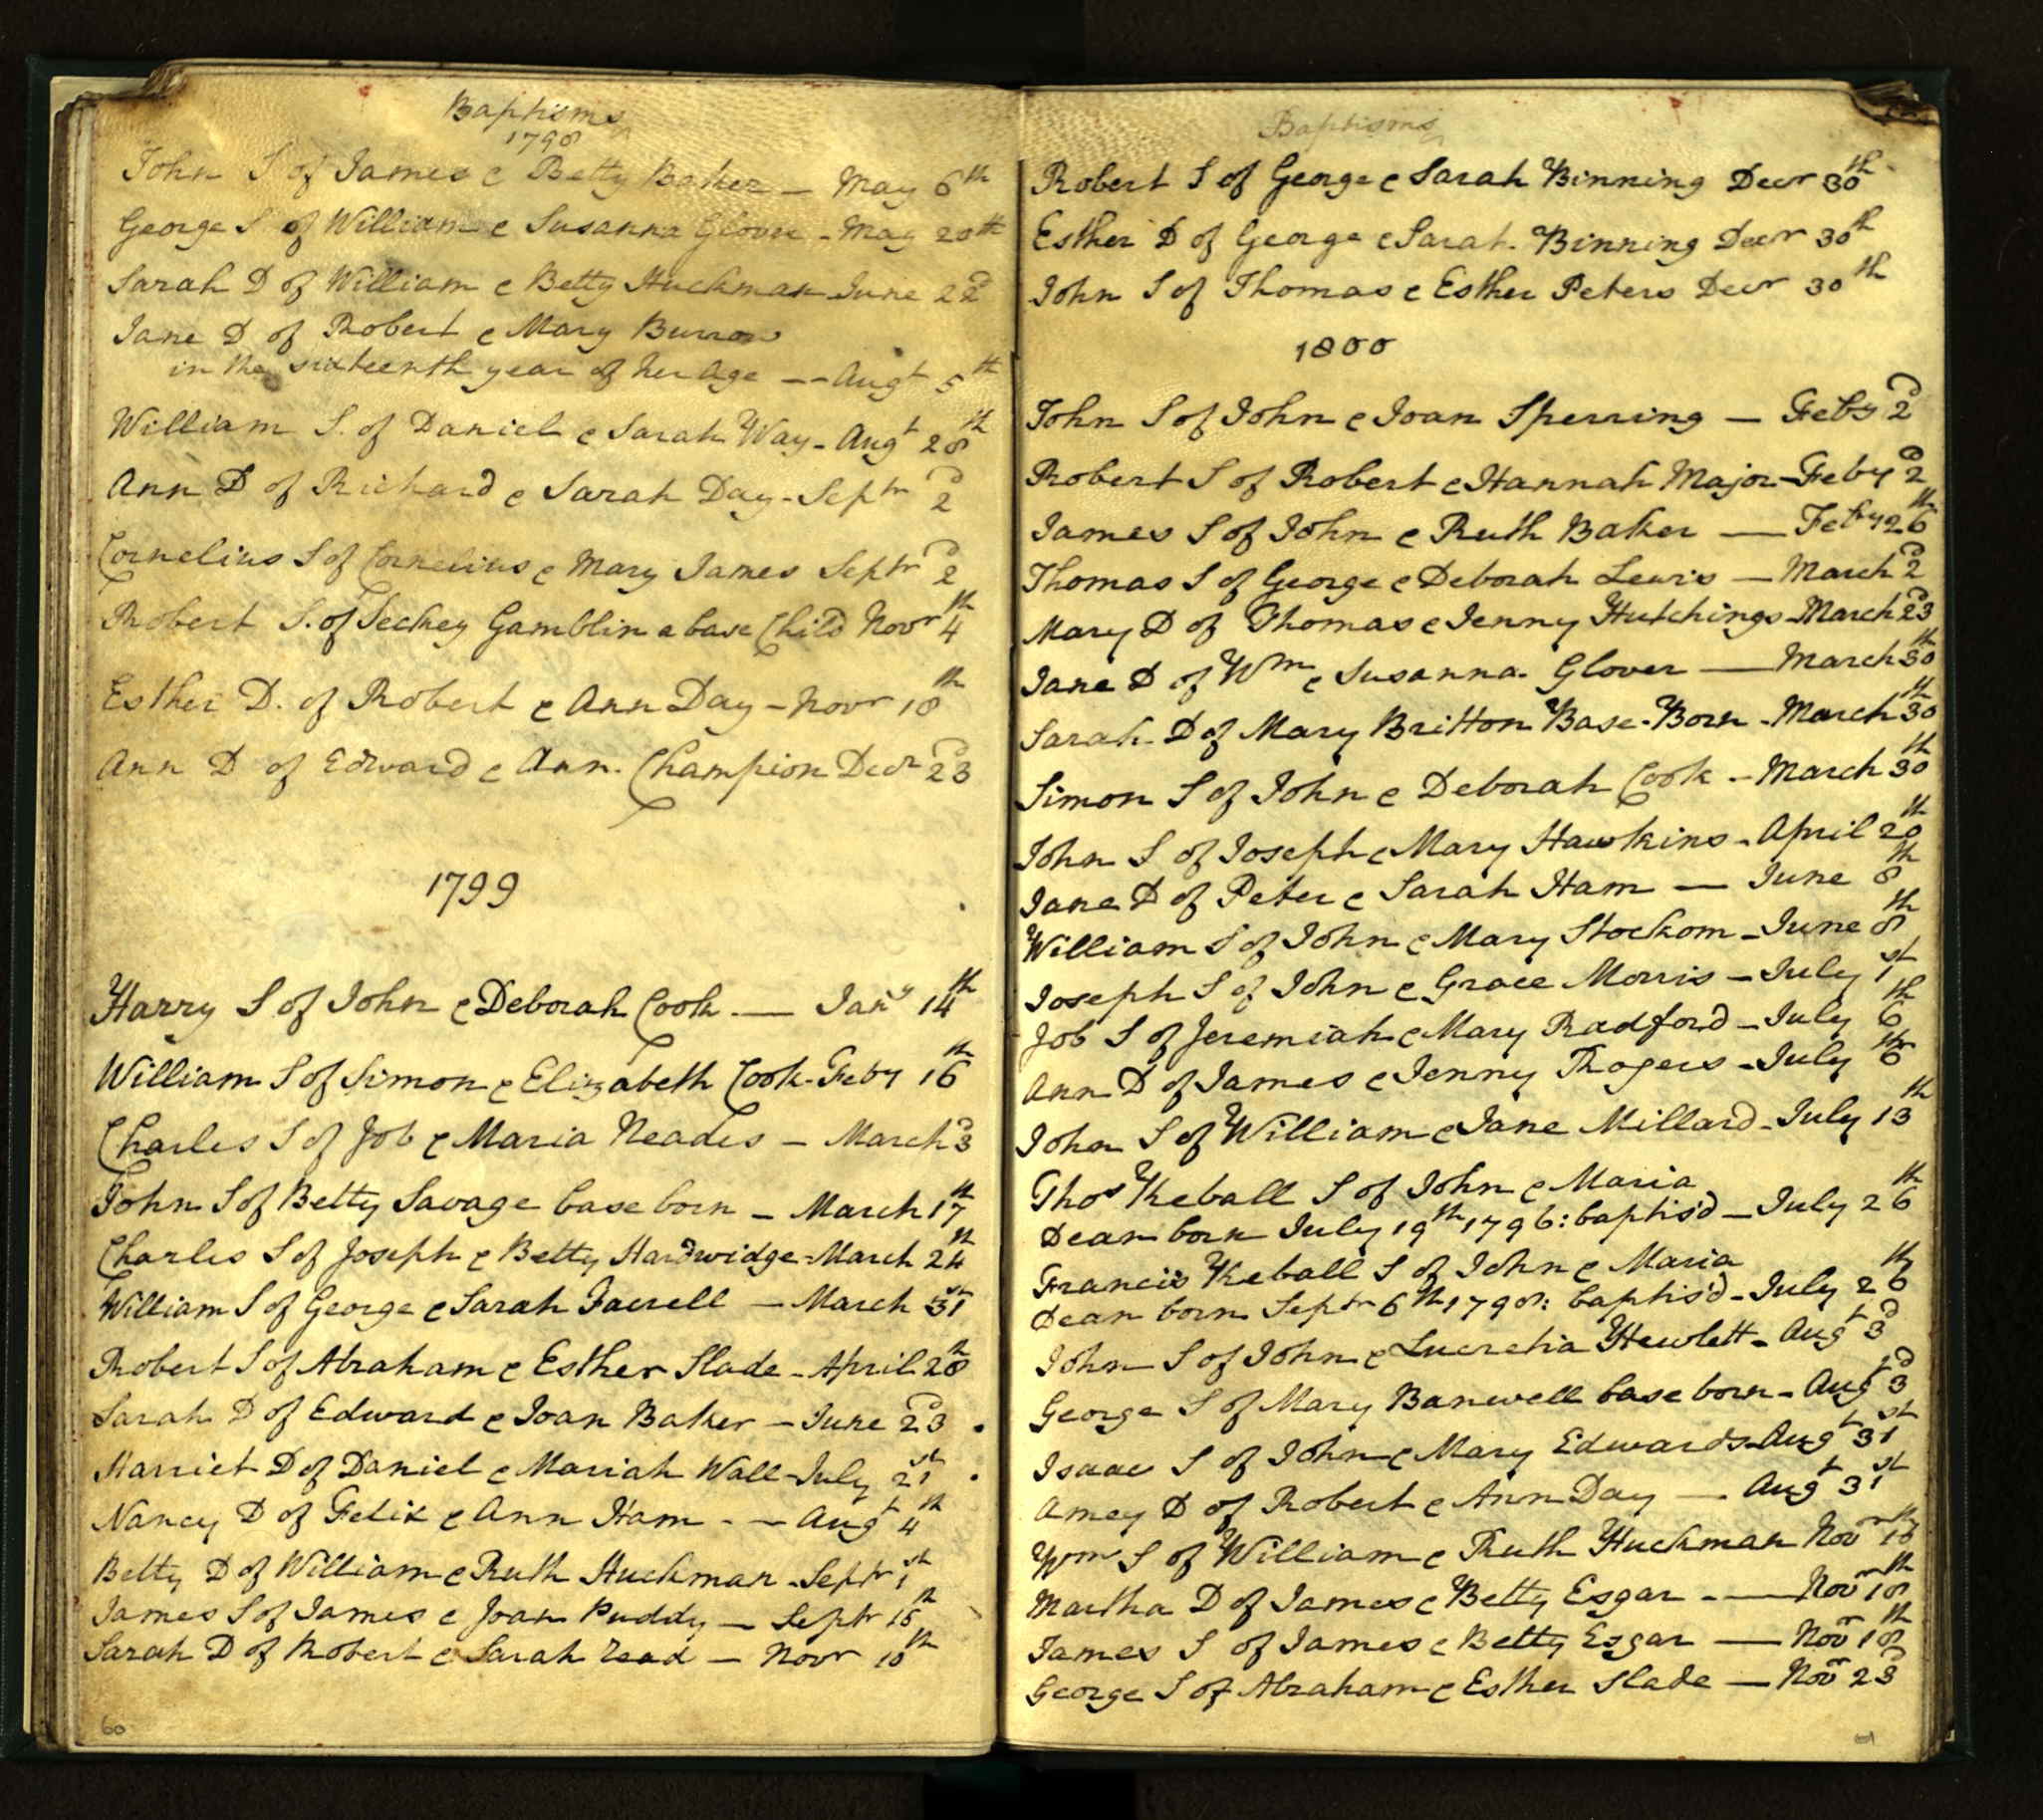 Baptisms
1798
John S of James & Betty Baker - May 6th
George S of William & Susanna Glover - May 20th
Sarah D of William & Betty Huckman June 22d
Jane D of Robert & Mary Burrow
in the sixteenth year of her Age -- Augt 5th
William S. of Daniel & Sarah Way - Augt 28th
Ann D of Richard & Sarah Day - Septr 2d
Cornelius S of Cornelius & Mary James Septr 2d
Robert S. of Seckey Gamblin a base Child Novr 4th
Esther D. of Robert & Ann Day - Novr 18th
Ann D of Edward & Ann. Champion Decr 23d
1799
Harry S of John & Deborah Cook. — Jany 14th
William S of Simon & Elizabeth Cook - Feby 16th
Charles S of Job & Maria Neades - March 3d
John S of Betty Savage base born - March 17th
Charles S of Joseph & Betty Hardwidge - March 24th
William S of George & Sarah - March 31st
Robert S of Abraham & Esther Slade - April 28th
Sarah D of Edward & Joan Baker - June 23d
Harriet D of Daniel & Mariah Wall - July 21st
Nancy D of Felix & Ann Ham - - Augt 4th
Betty D of William & Ruth Huckman - Septr 1st
James S of James & Joan Puddy - Septr 15th
Sarah D of Robert & Sarah read - Novr 10th
60
Baptisms
Robert S of George & Sarah Binning Decr 30th
Esther D of George & Sarah Binning Decr 30th
John S of Thomas & Esther Peters Decr 30th
1800
John S of John & Joan Sperring - Feby 2d
Robert S of Robert & Hannah Major - Feby 2d
James S of John & Ruth Baker — Feby 26th
Thomas S of George & Deborah Lewis - March 2d
Mary D of Thomas & Jenny Hutchings - March 23d
Jane D of Wm & Susanna. Glover — March 30th
Sarah D of Mary Britton Base-Born - March 30th
Simon S of John & Deborah Cook - March 30th
John S of Joseph & Mary Hawkins - April 20th
Jane D of Peter & Sarah Ham — June 8th
William S of John & Mary Stockom - June 8th
Joseph S of John & Grace Morris - July 1st
Job S of Jeremiah & Mary Radford - July 6th
Ann D of James & Jenny Rogers - July 6th
John S of William & Jane Millard - July 13th
Thos Keball S of John & Maria
Dean born July 19th 1796: baptis'd - July 26th
Francis Keball S of John & Maria
Dean born Septr 6th 1798: baptis'd - July 26th
John S of John & Lucretia Hewlett - Augt 3d
George S of Mary Banwell base born - Augt 3d
Isaac S of John & Mary Edwards - Augt 31st
Amey D of Robert & Ann Day — Augt 31st
Wm S of William & Ruth Huckman Novr 16th
Martha D of James & Betty Esgar - — Novr 18th
James S of James & Betty Esgar — Novr 18th
George S of Abraham & Esther Slade — Novr 23d